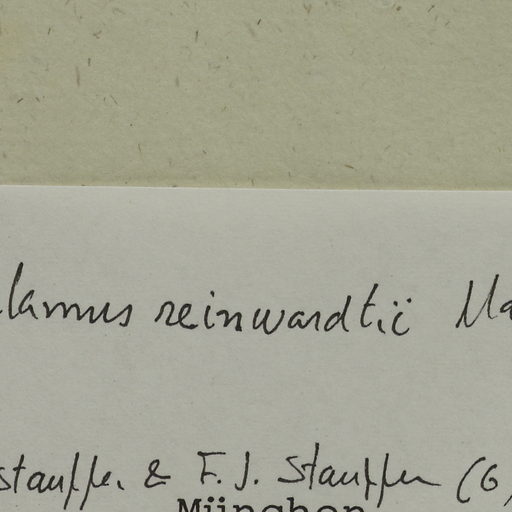 lamus reinwardtii Ma
stauffer & F. J. Stauffer (G
München